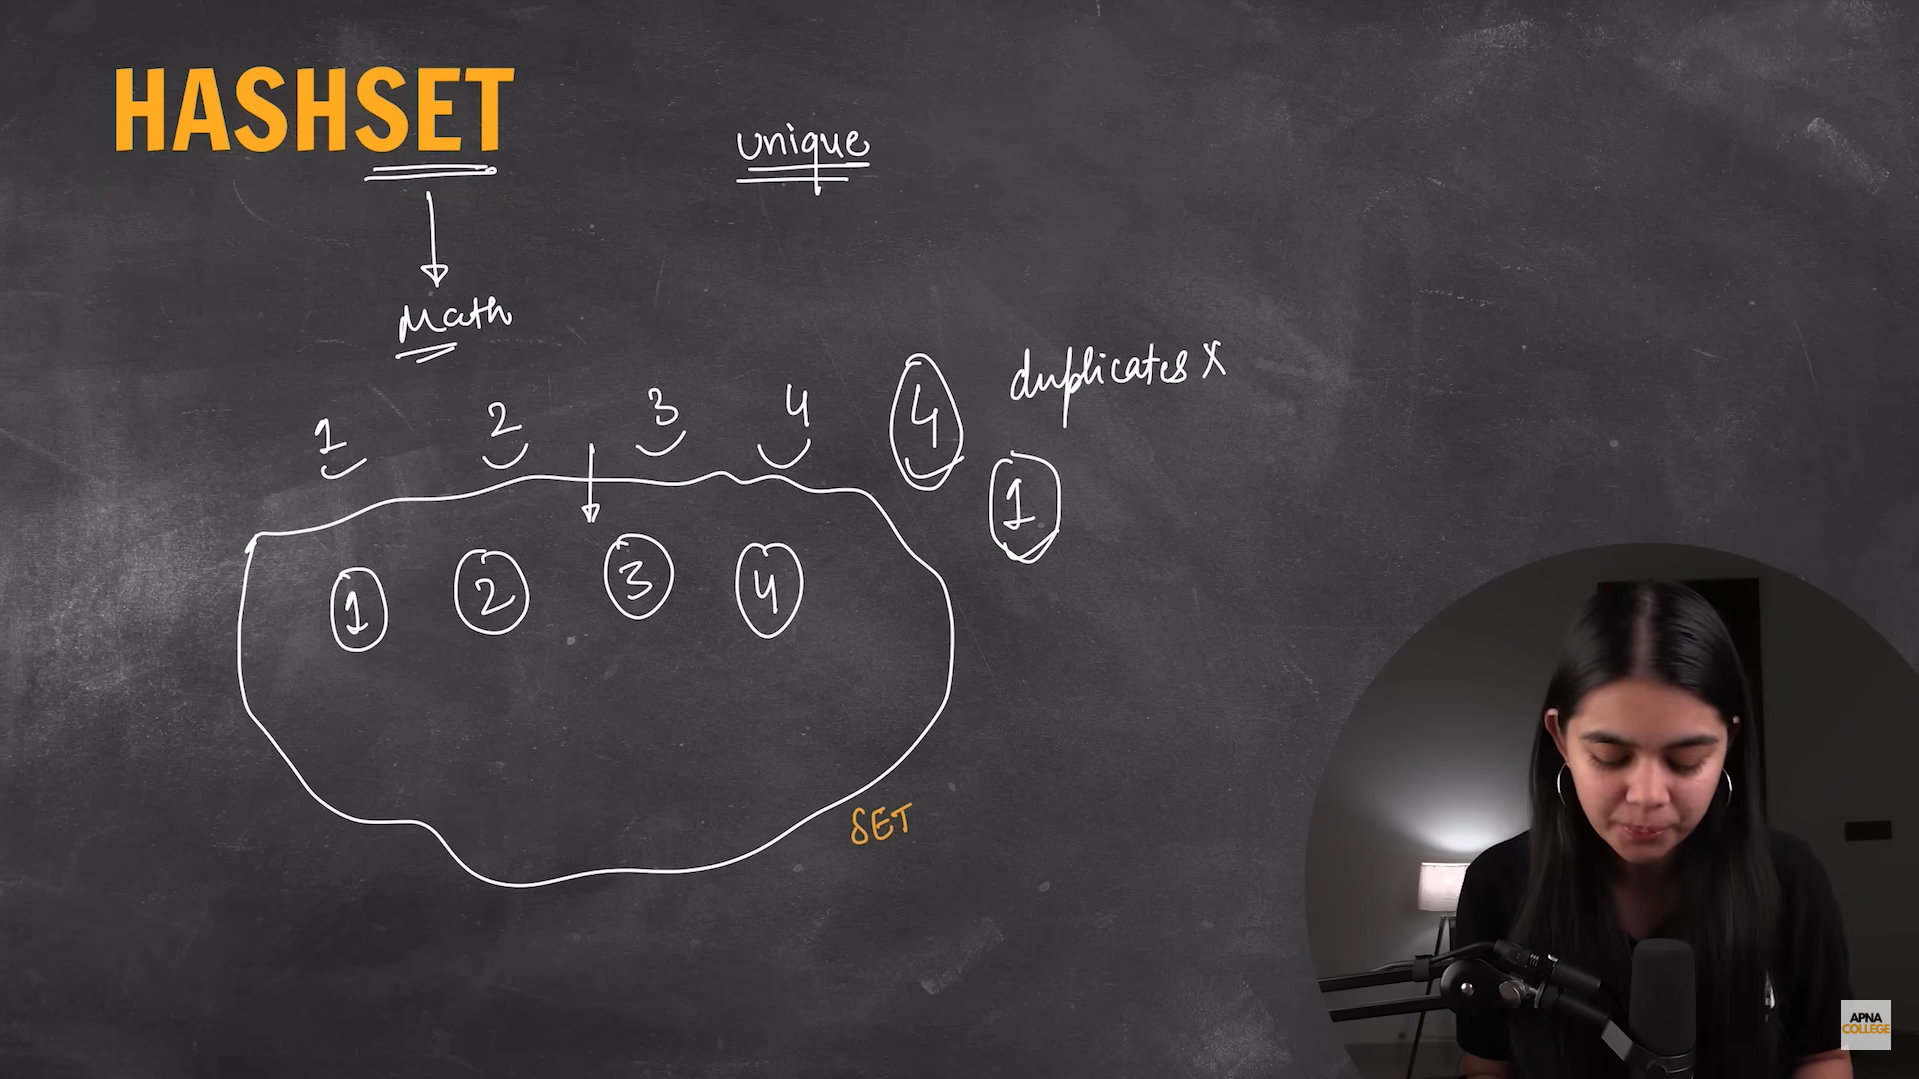 HASHSET
unique
Math
duplicates x
1 2 3 4 4
1
1 2 3 4
SET
APNA
COLLEGE